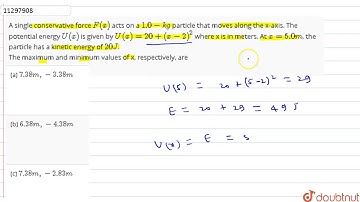 11297908
A single conservative force F(x) acts on a 1.0 − kg particle that moves along the x-axis. The
potential energy U(x) is given by U(x) = 20 + (x − 2)² where x is in meters. At x = 5.0m, the
particle has a kinetic energy of 20J.
The maximum and minimum values of x, respectively, are
(a) 7.38m, − 3.38m
(b) 6.38m, − 4.38m
(c) 7.38m, − 2.83m
U(5) = 20 + (5-2)² = 29
E = 20 + 29 = 49 J
U(x) = E = 5
doubtnut